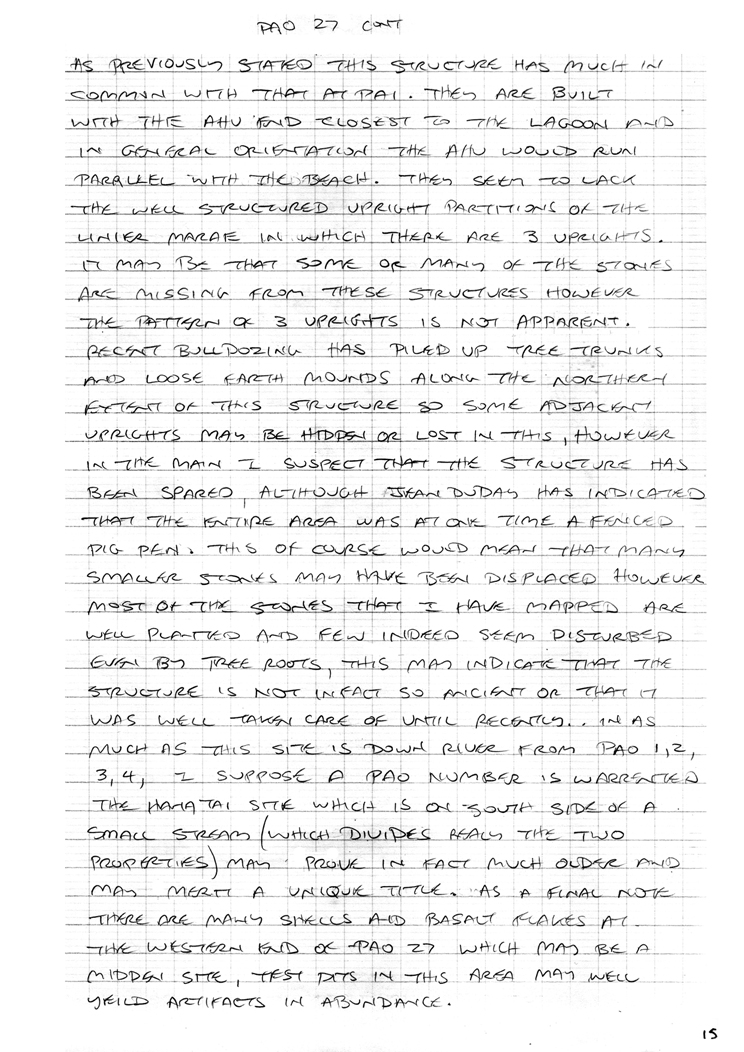 PAO 27 CONT
AS PREVIOUSLY STATED THIS STRUCTURE HAS MUCH IN
COMMON WITH THAT AT PA1. THEY ARE BUILT
WITH THE AHU END CLOSEST TO THE LAGOON AND
IN GENERAL ORIENTATION THE AHU WOULD RUN
PARALLEL WITH THE BEACH. THEY SEEM TO LACK
THE WELL STRUCTURED UPRIGHT PARTITIONS OF THE
LINIER MARAE IN WHICH THERE ARE 3 UPRIGHTS.
IT MAY BE THAT SOME OR MANY OF THE STONES
ARE MISSING FROM THESE STRUCTURES HOWEVER
THE PATTERN OF 3 UPRIGHTS IS NOT APPARENT.
RECENT BULLDOZING HAS PILED UP TREE TRUNKS
AND LOOSE EARTH MOUNDS ALONG THE NORTHERN
EXTENT OF THIS STRUCTURE SO SOME ADJACENT
UPRIGHTS MAY BE HIDDEN OR LOST IN THIS, HOWEVER
IN THE MAIN I SUSPECT THAT THE STRUCTURE HAS
BEEN SPARED, ALTHOUGH JEAN DUDAY HAS INDICATED
THAT THE ENTIRE AREA WAS AT ONE TIME A FENCED
PIG PEN. THIS OF COURSE WOULD MEAN THAT MANY
SMALLER STONES MAY HAVE BEEN DISPLACED HOWEVER
MOST OF THE STONES THAT I HAVE MAPPED ARE
WELL PLANTED AND FEW INDEED SEEM DISTURBED
EVEN BY TREE ROOTS, THIS MAY INDICATE THAT THE
STRUCTURE IS NOT INFACT SO ANCIENT OR THAT IT
WAS WELL TAKEN CARE OF UNTIL RECENTLY.. IN AS
MUCH AS THIS SITE IS DOWN RIVER FROM PAO 1, 2,
3, 4, I SUPPOSE A PAO NUMBER IS WARRENTED
THE HAMATAI SITE WHICH IS ON SOUTH SIDE OF A
SMALL STREAM (WHICH DIVIDES REALY THE TWO
PROPERTIES) MAY PROVE IN FACT MUCH OLDER AND
MAY MERIT A UNIQUE TITLE. AS A FINAL NOTE
THERE ARE MANY SHELLS AND BASALT FLAKES AT
THE WESTERN END OF PAO 27 WHICH MAY BE A
MIDDEN SITE, TEST PITS IN THIS AREA MAY WELL
YEILD ARTIFACTS IN ABUNDANCE.
15